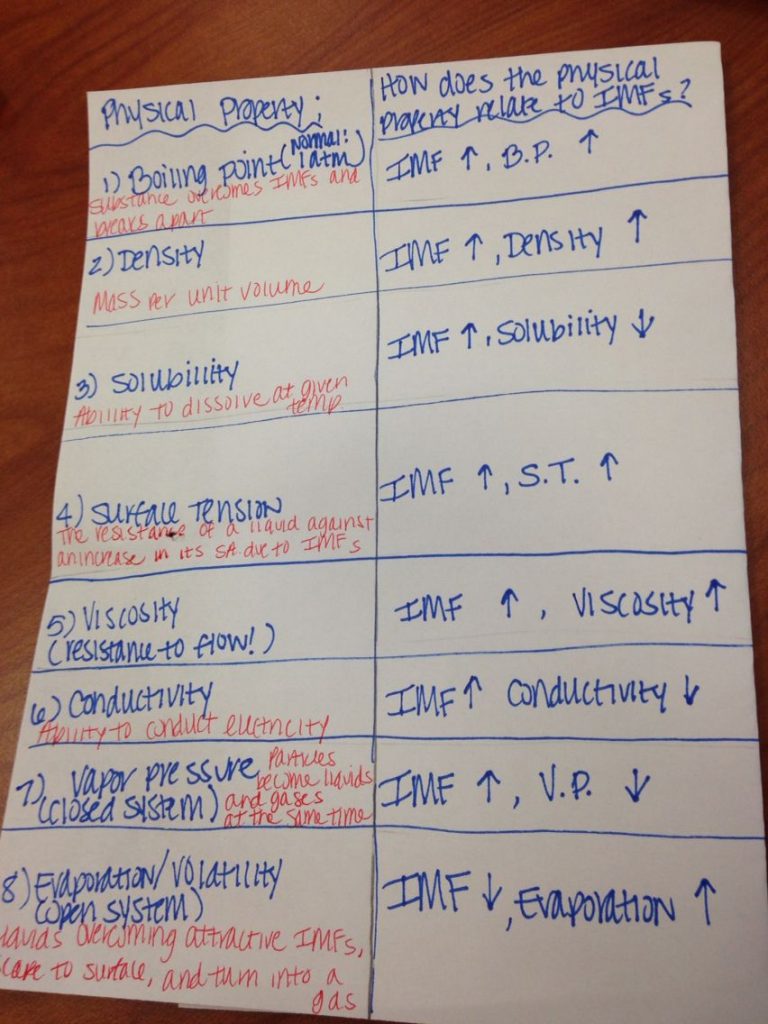 Physical Property:
How does the physical
property relate to IMFs?
1) Boiling point (Normal: 1 atm)
substance overcomes IMFs and
breaks apart
IMF ↑, B.P. ↑
2) Density
Mass per unit volume
IMF ↑, Density ↑
3) Solubility
Ability to dissolve at given
temp
IMF ↑, Solubility ↓
4) Surface Tension
The resistance of a liquid against
an increase in its SA due to IMFs
IMF ↑, S.T. ↑
5) Viscosity
(resistance to flow!)
IMF ↑, Viscosity ↑
6) Conductivity
Ability to conduct electricity
IMF ↑ Conductivity ↓
7) Vapor pressure
(closed system)
Particles
become liquids
and gases
at the same time
IMF ↑, V.P. ↓
8) Evaporation/Volatility
(open system)
overcoming attractive IMFs,
to surface, and turn into a
gas
IMF ↓, Evaporation ↑